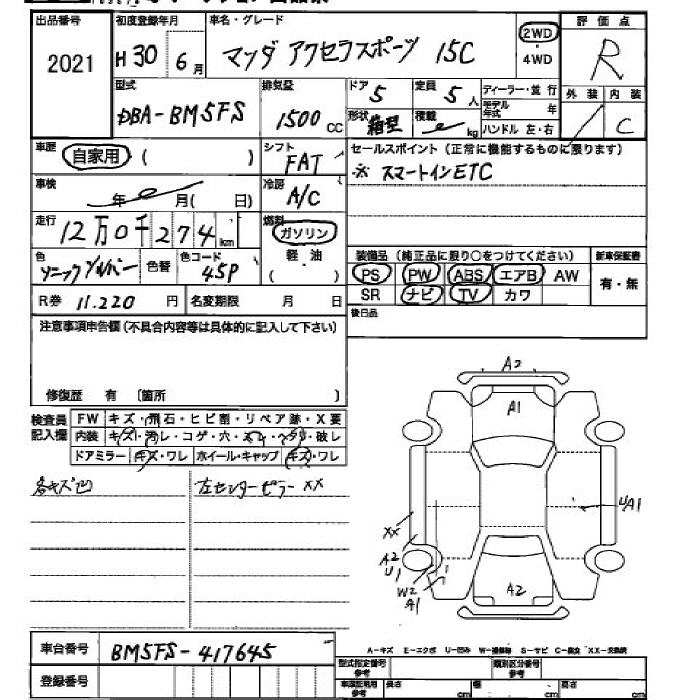 出品番号 初度登録年月 車名・グレード 評価点
2021 H30年6月 マツダ アクセラスポーツ 15C 2WD ・4WD R
型式 排気量 ドア 定員 ディーラー・並行 外装 内装
DBA-BM5FS 1500CC 5 5人 モデル年式 年 / C
形状 箱型 積載 kg ハンドル 左・右
車歴 自家用 ( ) シフト FAT セールスポイント(正常に機能するものに限ります)
※ スマートインETC
車検 年 月( 日) 冷房 A/C
走行 12万0千274km 燃料 ガソリン
軽・油
( )
色 ソニックシルバー 色替 色コード 45P
装備品(純正品に限り○をつけてください) 新車保証書
PS PW ABS エアB AW 有・無
SR ナビ TV カワ
R券 11.220 円 名変期限 月 日
後日品
注意事項申告欄(不具合内容等は具体的に記入して下さい)
修復歴 有 〔箇所 〕
検査員記入欄 FW キズ・飛石・ヒビ割・リペア跡・X要
内装 キズ・汚レ・コゲ・穴・ ・ ・破レ
ドアミラー キズ・ワレ ホイール・キャップ キズ・ワレ
各キズ凹 左センターピラー XX
A2
A1
U/A1
XX
A2
U1
W2
A1
A2
A-キズ E-エクボ U-凹み W-補修跡 S-サビ C-腐食 XX-交換済
車台番号 BM5FS-417645
登録番号
型式指定番号 参考 類別区分番号 参考
参考 長さ cm 幅 cm 高さ cm